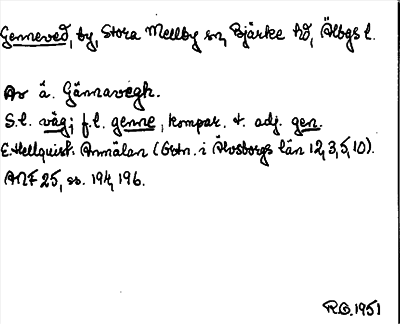 Genneved, by, Stora Mellby sn, Bjärke hd, Älvgs l.
Av ä. Gännavegh.
S.l. väg; f.l. genne, kompar. t. adj. gen.
E. Hellquist: Anmälan (Ortn. i Älvsborgs län 12, 3, 5, 10).
ANF 25, ss. 194, 196.
R.O. 1951